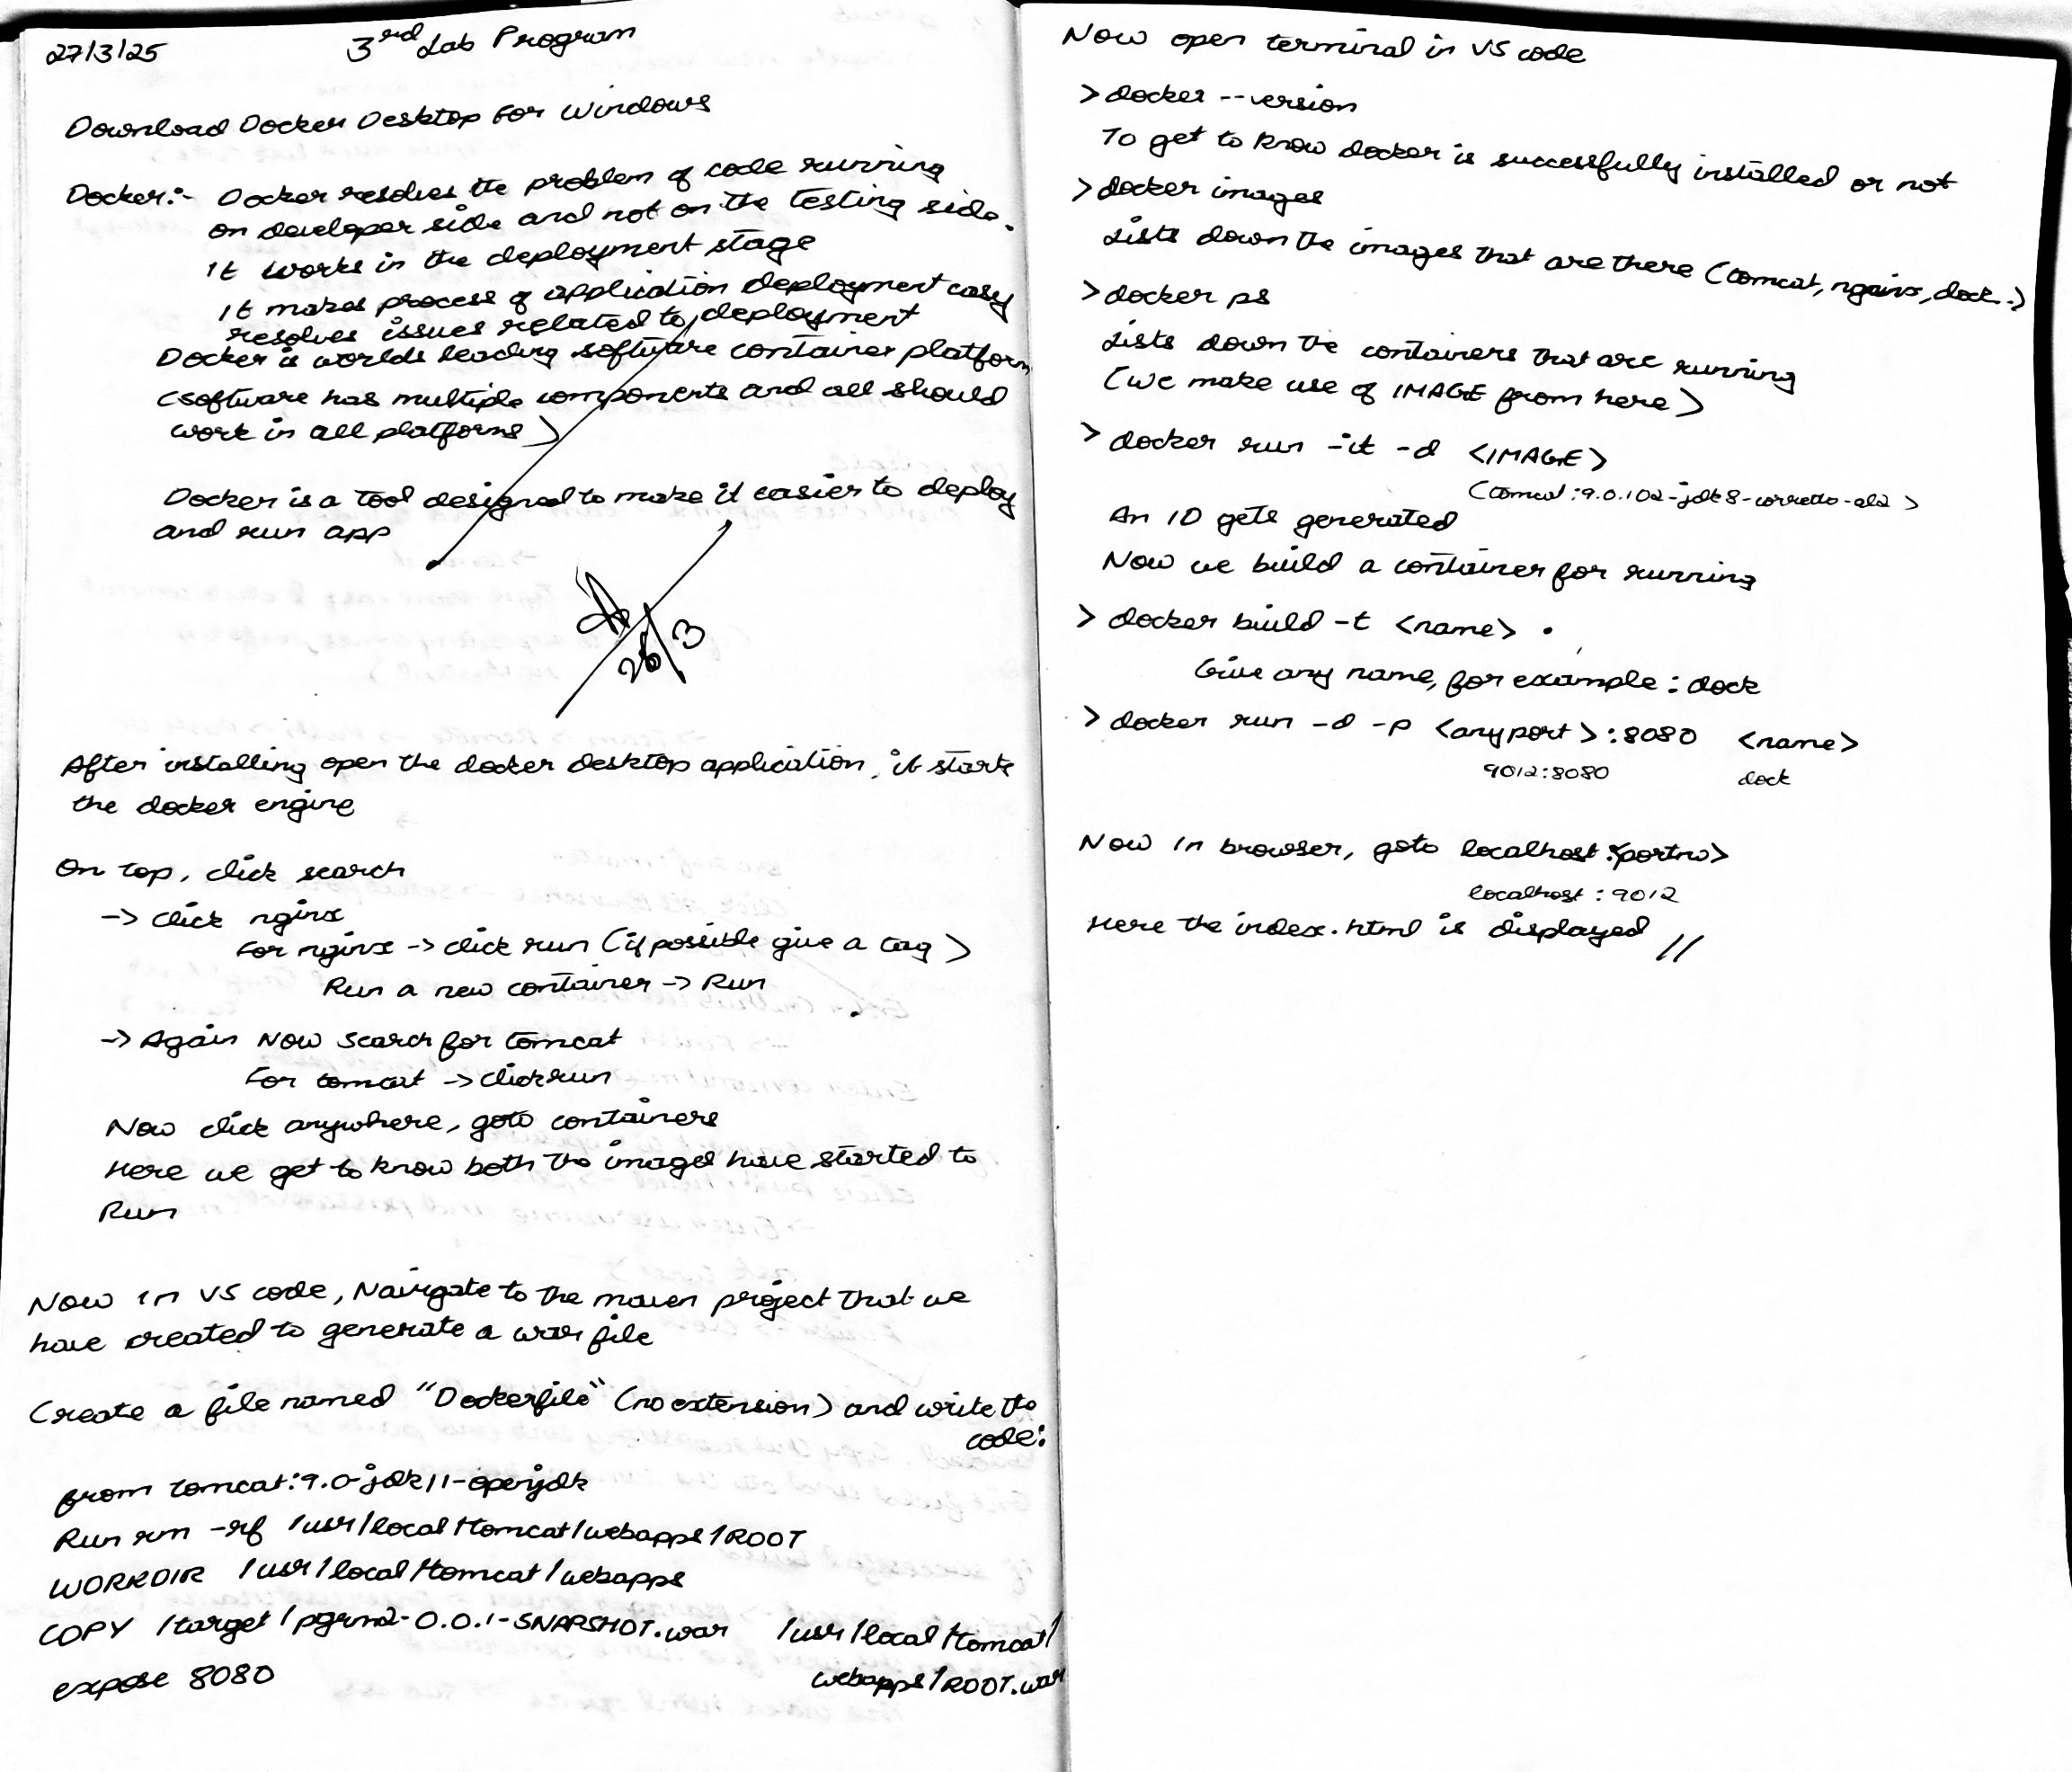 27/3/25
3rd Lab Program
Download Docker Desktop For Windows
Docker:- Docker resolves the problem of code running
on developer side and not on the testing side.
It works in the deployment stage
It makes process of application deployment easy
resolves issues related to deployment
Docker is worlds leading software container platform
(software has multiple components and all should
work in all platforms)
Docker is a tool designed to make it easier to deploy
and run app
26/3
After installing open the docker desktop application, it starts
the docker engine
On top, click search
-> click nginx
For nginx -> click run (if possible give a tag)
Run a new container -> Run
-> Again Now search for tomcat
For tomcat -> click run
Now click anywhere, goto containers
Here we get to know both the images have started to
Run
Now in VS code, Navigate to the maven project that we
have created to generate a war file
Create a file named "Dockerfile" (no extension) and write the
code:
from tomcat:9.0-jdk11-openjdk
Run rm -rf /usr/local/tomcat/webapps/ROOT
WORKDIR /usr/local/tomcat/webapps
COPY /target/pgrm2-0.0.1-SNAPSHOT.war /usr/local/tomcat/
webapps/ROOT.war
expose 8080
Now open terminal in VS code
> docker --version
To get to know docker is successfully installed or not
> docker images
Lists down the images that are there (tomcat, nginx, dock..)
> docker ps
Lists down the containers that are running
(we make use of IMAGE from here)
> docker run -it -d <IMAGE>
(tomcat:9.0.102-jdk8-corretto-al2>
An ID gets generated
Now we build a container for running
> docker build -t <name> .
Give any name, for example: dock
> docker run -d -p <anyport>:8080 <name>
9012:8080 dock
Now in browser, goto localhost:<portno>
localhost:9012
Here the index.html is displayed //